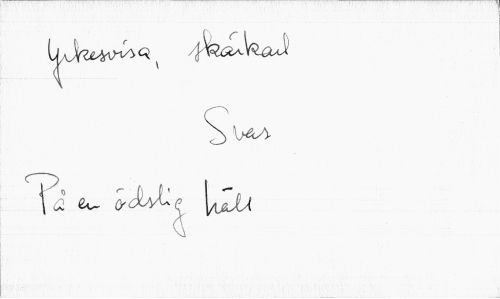 Yrkesvisa, skärkarl
Svar
På en ödslig häll